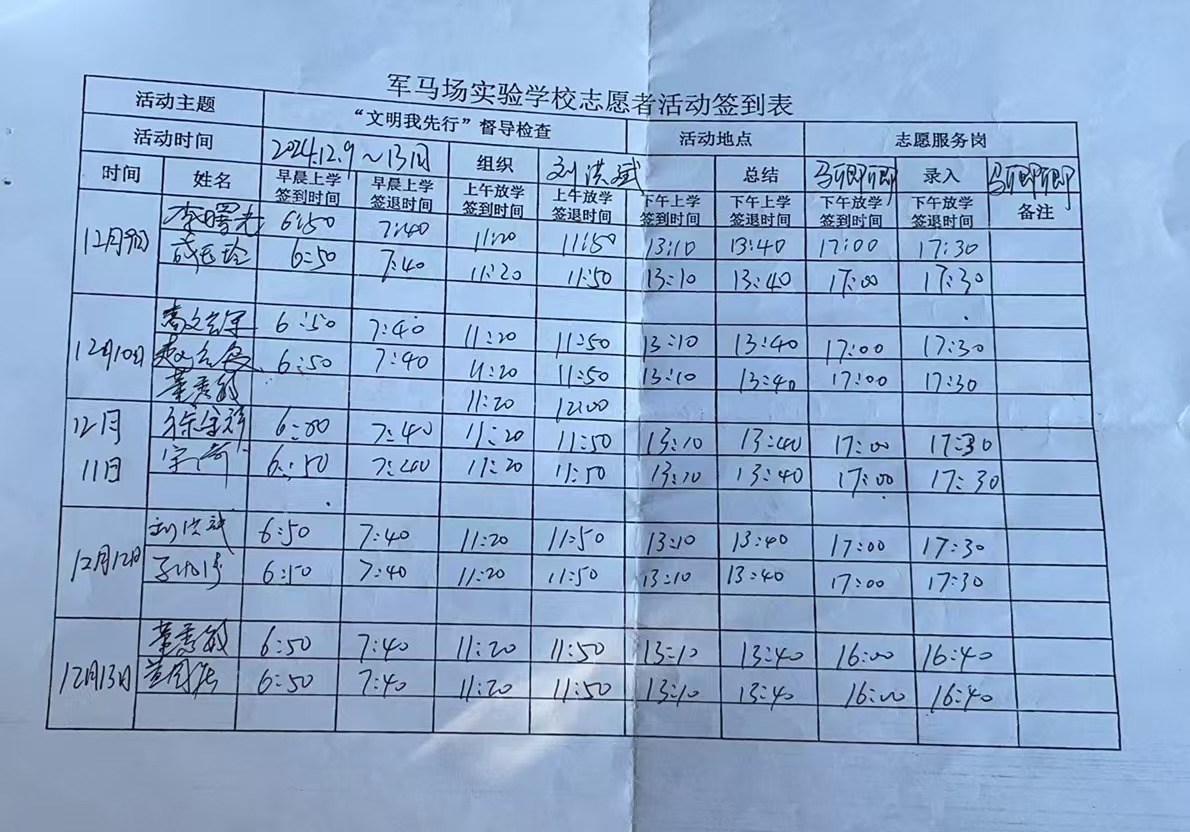 军马场实验学校志愿者活动签到表
活动主题 “文明我先行”督导检查 活动地点 志愿服务岗
活动时间 2024.12.9~13日 组织 刘洪斌 总结 马郎郎 录入 马郎郎
时间 姓名 早晨上学签到时间 早晨上学签退时间 上午放学签到时间 上午放学签退时间 下午上学签到时间 下午上学签退时间 下午放学签到时间 下午放学签退时间 备注
12月9日 李曙光 6:50 7:40 11:20 11:50 13:10 13:40 17:00 17:30
6:50 7:40 11:20 11:50 13:10 13:40 17:00 17:30
12月10日 6:50 7:40 11:20 11:50 13:10 13:40 17:00 17:30
6:50 7:40 11:20 11:50 13:10 13:40 17:00 17:30
董秀敏 11:20 12:00
12月11日 7:40 11:20 11:50 13:10 13:40 17:00 17:30
6:50 7:40 11:20 11:50 13:10 13:40 17:00 17:30
12月12日 刘洪斌 6:50 7:40 11:20 11:50 13:10 13:40 17:00 17:30
6:50 7:40 11:20 11:50 13:10 13:40 17:00 17:30
12月13日 董秀敏 6:50 7:40 11:20 11:50 13:10 13:40 16:00 16:40
6:50 7:40 11:20 11:50 13:10 13:40 16:00 16:40